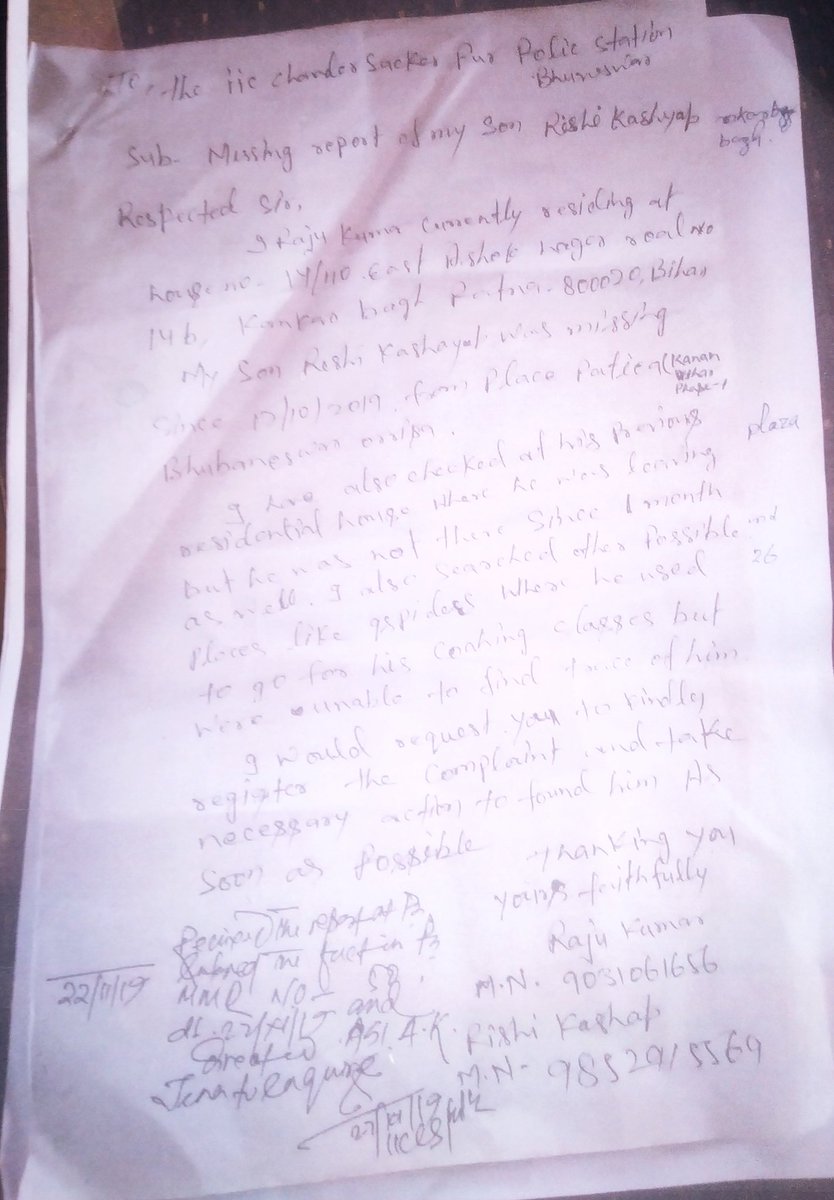 To, The iic chander Sacker Pur Polic Station
Bhunesniar
Sub- Missing report of my Son Rishi Kashyap
bagh.
Respected Sir,
I Raju Kumar Currently residing at
house no. 14/110 East Ashok nager road no
14b, Kankar bagh Patna- 800020, Bihar
My Son Rishi Kashayap was missing
Since 12/10/2019. from Place Patica (Kanan
Vihar
Phase-1
Bhubaneswar orrisa.
I have also checked at his Previous
plaza
residential house where he was leaving
but he was not there Since 1 month
as well. I also searched other Possible
26
Places like qspiders where he used
to go for his Coaching classes but
were unable to find trace of him
I would request you to kindly
register the Complaint and take
necessary action to found him As
Soon as Possible
Thanking you
yours faithfully
Raju Kumar
M.N. 9031061656
Rishi Kashap
M.N- 9852915569
Received the report at Ps
Entered the fact in Ps
22/11/19
MMR No- 58
dt. 22/11/19 and
Directed ASI A.K.
Jena to enquire
22/11/19